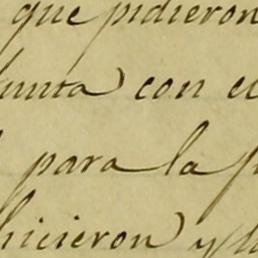 que pidieron
con el
para la
hicieron y